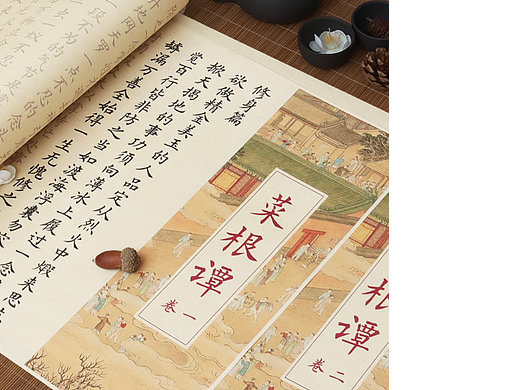 修身篇
欲做精金美玉的人品定从烈火中煅来思
掀天揭地的事功须向薄冰上履过一念
觉百行皆非防之当如渡海浮囊勿容
罅漏万善全始得一生无愧修之
菜根谭
卷一
根谭
卷二
一点不忍的念
段不为的气节是